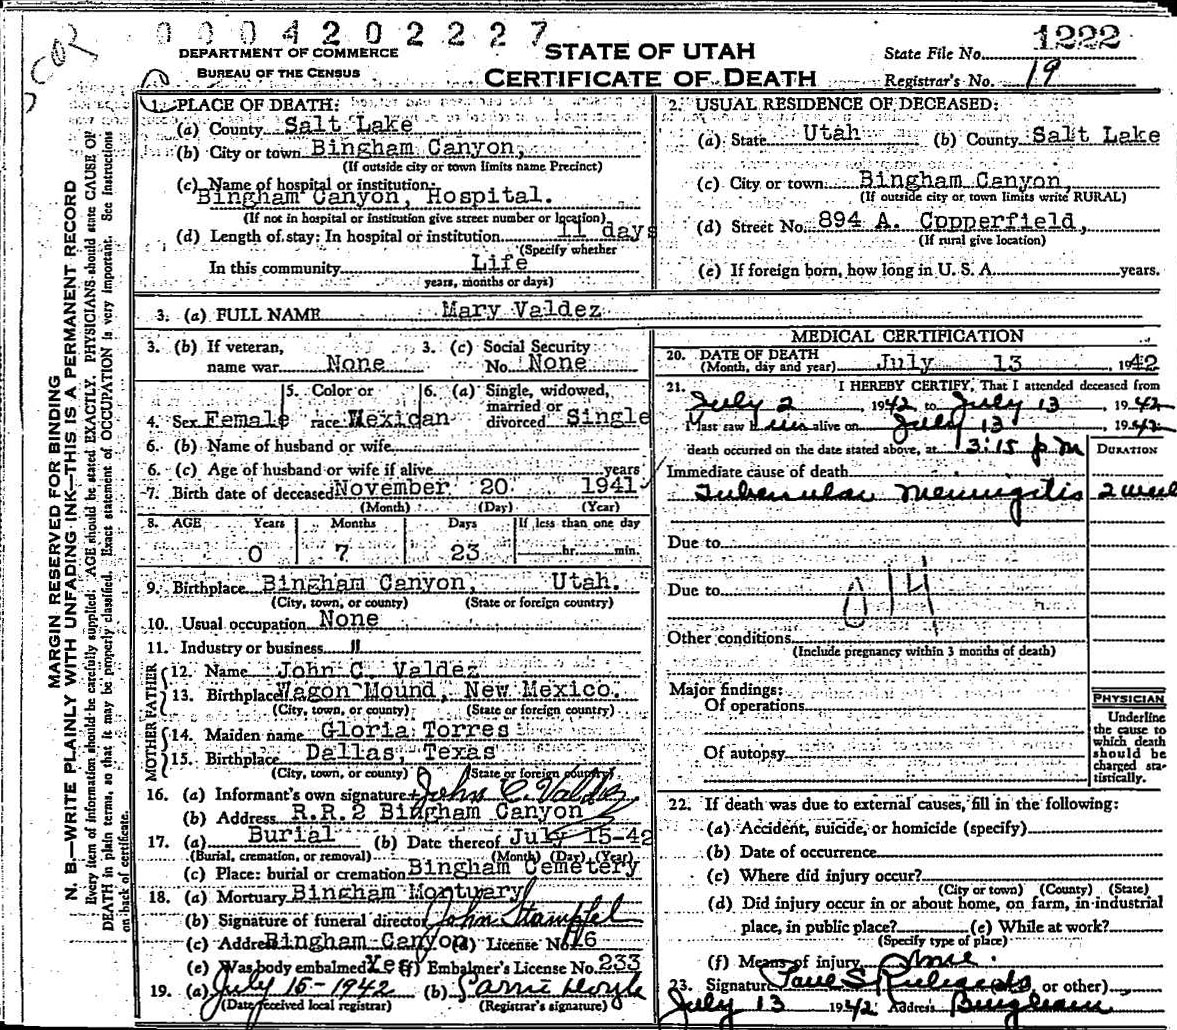 0004202227
DEPARTMENT OF COMMERCE
BUREAU OF THE CENSUS
STATE OF UTAH
CERTIFICATE OF DEATH
State File No. 1222
Registrar's No. 19
MARGIN RESERVED FOR BINDING
N. B.—WRITE PLAINLY WITH UNFADING INK—THIS IS A PERMANENT RECORD
Every item of information should be carefully supplied. AGE should be stated EXACTLY. PHYSICIANS should state CAUSE OF
DEATH in plain terms, so that it may be properly classified. Exact statement of OCCUPATION is very important. See instructions
on back of certificate.
1. PLACE OF DEATH:
(a) County Salt Lake
(b) City or town Bingham Canyon,
(If outside city or town limits name Precinct)
(c) Name of hospital or institution:
Bingham Canyon, Hospital.
(If not in hospital or institution give street number or location)
(d) Length of stay: In hospital or institution 11 days
(Specify whether
In this community Life
years, months or days)
2. USUAL RESIDENCE OF DECEASED:
(a) State Utah (b) County Salt Lake
(c) City or town: Bingham Canyon,
(If outside city or town limits write RURAL)
(d) Street No. 894 A. Copperfield,
(If rural give location)
(e) If foreign born, how long in U. S. A. years.
3. (a) FULL NAME Mary Valdez
3. (b) If veteran, 3. (c) Social Security
name war None No. None
5. Color or 6. (a) Single, widowed,
married or
4. Sex Female race Mexican divorced Single
6. (b) Name of husband or wife
6. (c) Age of husband or wife if alive years
7. Birth date of deceased November 20 1941
(Month) (Day) (Year)
8. AGE Years Months Days If less than one day
0 7 23 hr. min.
9. Birthplace Bingham Canyon, Utah.
(City, town, or county) (State or foreign country)
10. Usual occupation None
11. Industry or business "
FATHER
12. Name John C. Valdez
13. Birthplace Wagon Mound, New Mexico.
(City, town, or county) (State or foreign country)
MOTHER
14. Maiden name Gloria Torres
15. Birthplace Dallas, Texas
(City, town, or county) (State or foreign country)
16. (a) Informant's own signature John C. Valdez
(b) Address R.R.2 Bingham Canyon
17. (a) Burial (b) Date thereof July 15-42
(Burial, cremation, or removal) (Month) (Day) (Year)
(c) Place: burial or cremation Bingham Cemetery
18. (a) Mortuary Bingham Mortuary
(b) Signature of funeral director John Stampfel
(c) Address Bingham Canyon (d) License No. 76
(e) Was body embalmed Yes (f) Embalmer's License No. 233
19. (a) July 15-1942 (b)
(Date received local registrar) (Registrar's signature)
MEDICAL CERTIFICATION
20. DATE OF DEATH
(Month, day and year) July 13, 1942
21. I HEREBY CERTIFY, That I attended deceased from
July 2, 1942 to July 13, 1942
I last saw h alive on July 13, 1942
death occurred on the date stated above, at 3:15 p.m DURATION
Immediate cause of death
Tubercular Meningitis 2 week
Due to
Due to
014
Other conditions
(Include pregnancy within 3 months of death)
Major findings:
Of operations
Of autopsy
PHYSICIAN
Underline
the cause to
which death
should be
charged sta-
tistically.
22. If death was due to external causes, fill in the following:
(a) Accident, suicide, or homicide (specify)
(b) Date of occurrence
(c) Where did injury occur?
(City or town) (County) (State)
(d) Did injury occur in or about home, on farm, in industrial
place, in public place? (e) While at work?
(Specify type of place)
(f) Means of injury
23. Signature Paul S. or other)
July 13 1942 Address Bingham